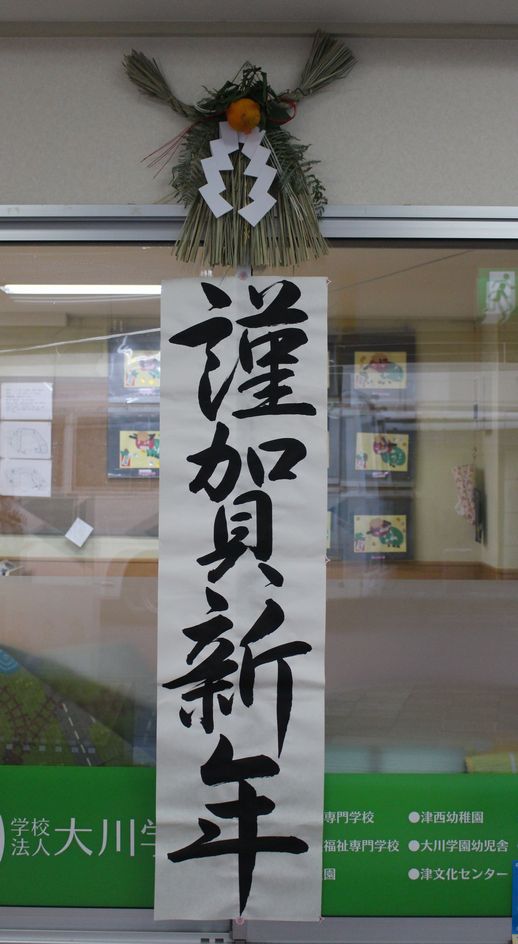 謹賀新年
学校
法人 大川学
専門学校
福祉専門学校
園
●津西幼稚園
●大川学園幼児舎
●津文化センター